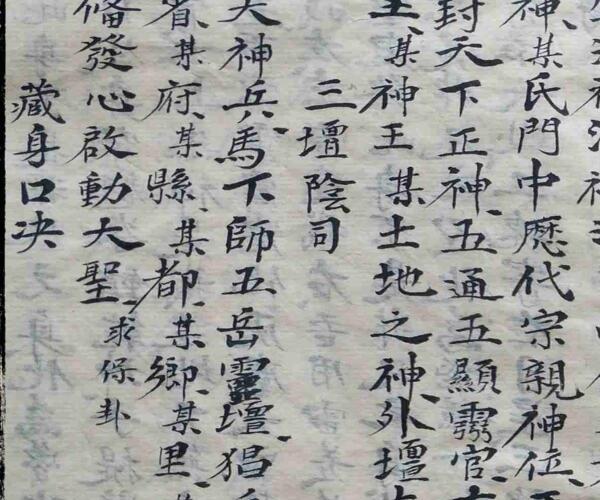 神、某氏門中歷代宗親神位、
封天下正神、五通五顯靈官、
王、某神王、某土地之神、外壇
三壇陰司
天神兵、馬下師五岳靈壇、猖
省、某府、某縣、某都、某鄉、某里、
脩發心啟動大聖、求保卦
藏身口决